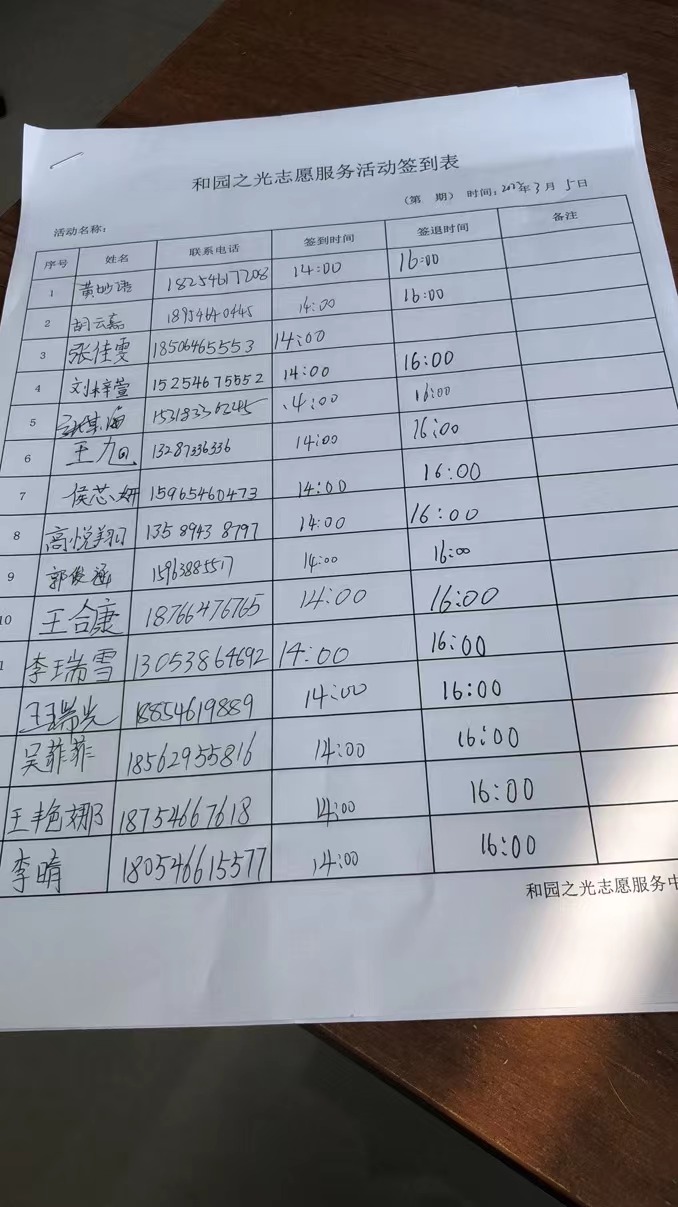 和园之光志愿服务活动签到表
（第 期） 时间：2023年3月5日
活动名称：
序号 姓名 联系电话 签到时间 签退时间 备注
1 18254617208 14:00 16:00
2 胡云嘉 18954640445 14:00 16:00
3 张佳雯 18506465553 14:00
4 刘梓萱 15254675552 14:00 16:00
5 15318336245 14:00 16:00
6 13287336336 14:00 16:00
7 侯芯妍 15965460473 14:00 16:00
8 高悦翔 13589438797 14:00 16:00
9 郭俊涵 15963885517 14:00 16:00
10 王合康 18766476765 14:00 16:00
1 李瑞雪 13053864692 14:00 16:00
王瑞光 18854619889 14:00 16:00
吴菲菲 18562955816 14:00 16:00
王艳娜 18754667618 14:00 16:00
李晴 180546615577 14:00 16:00
和园之光志愿服务中